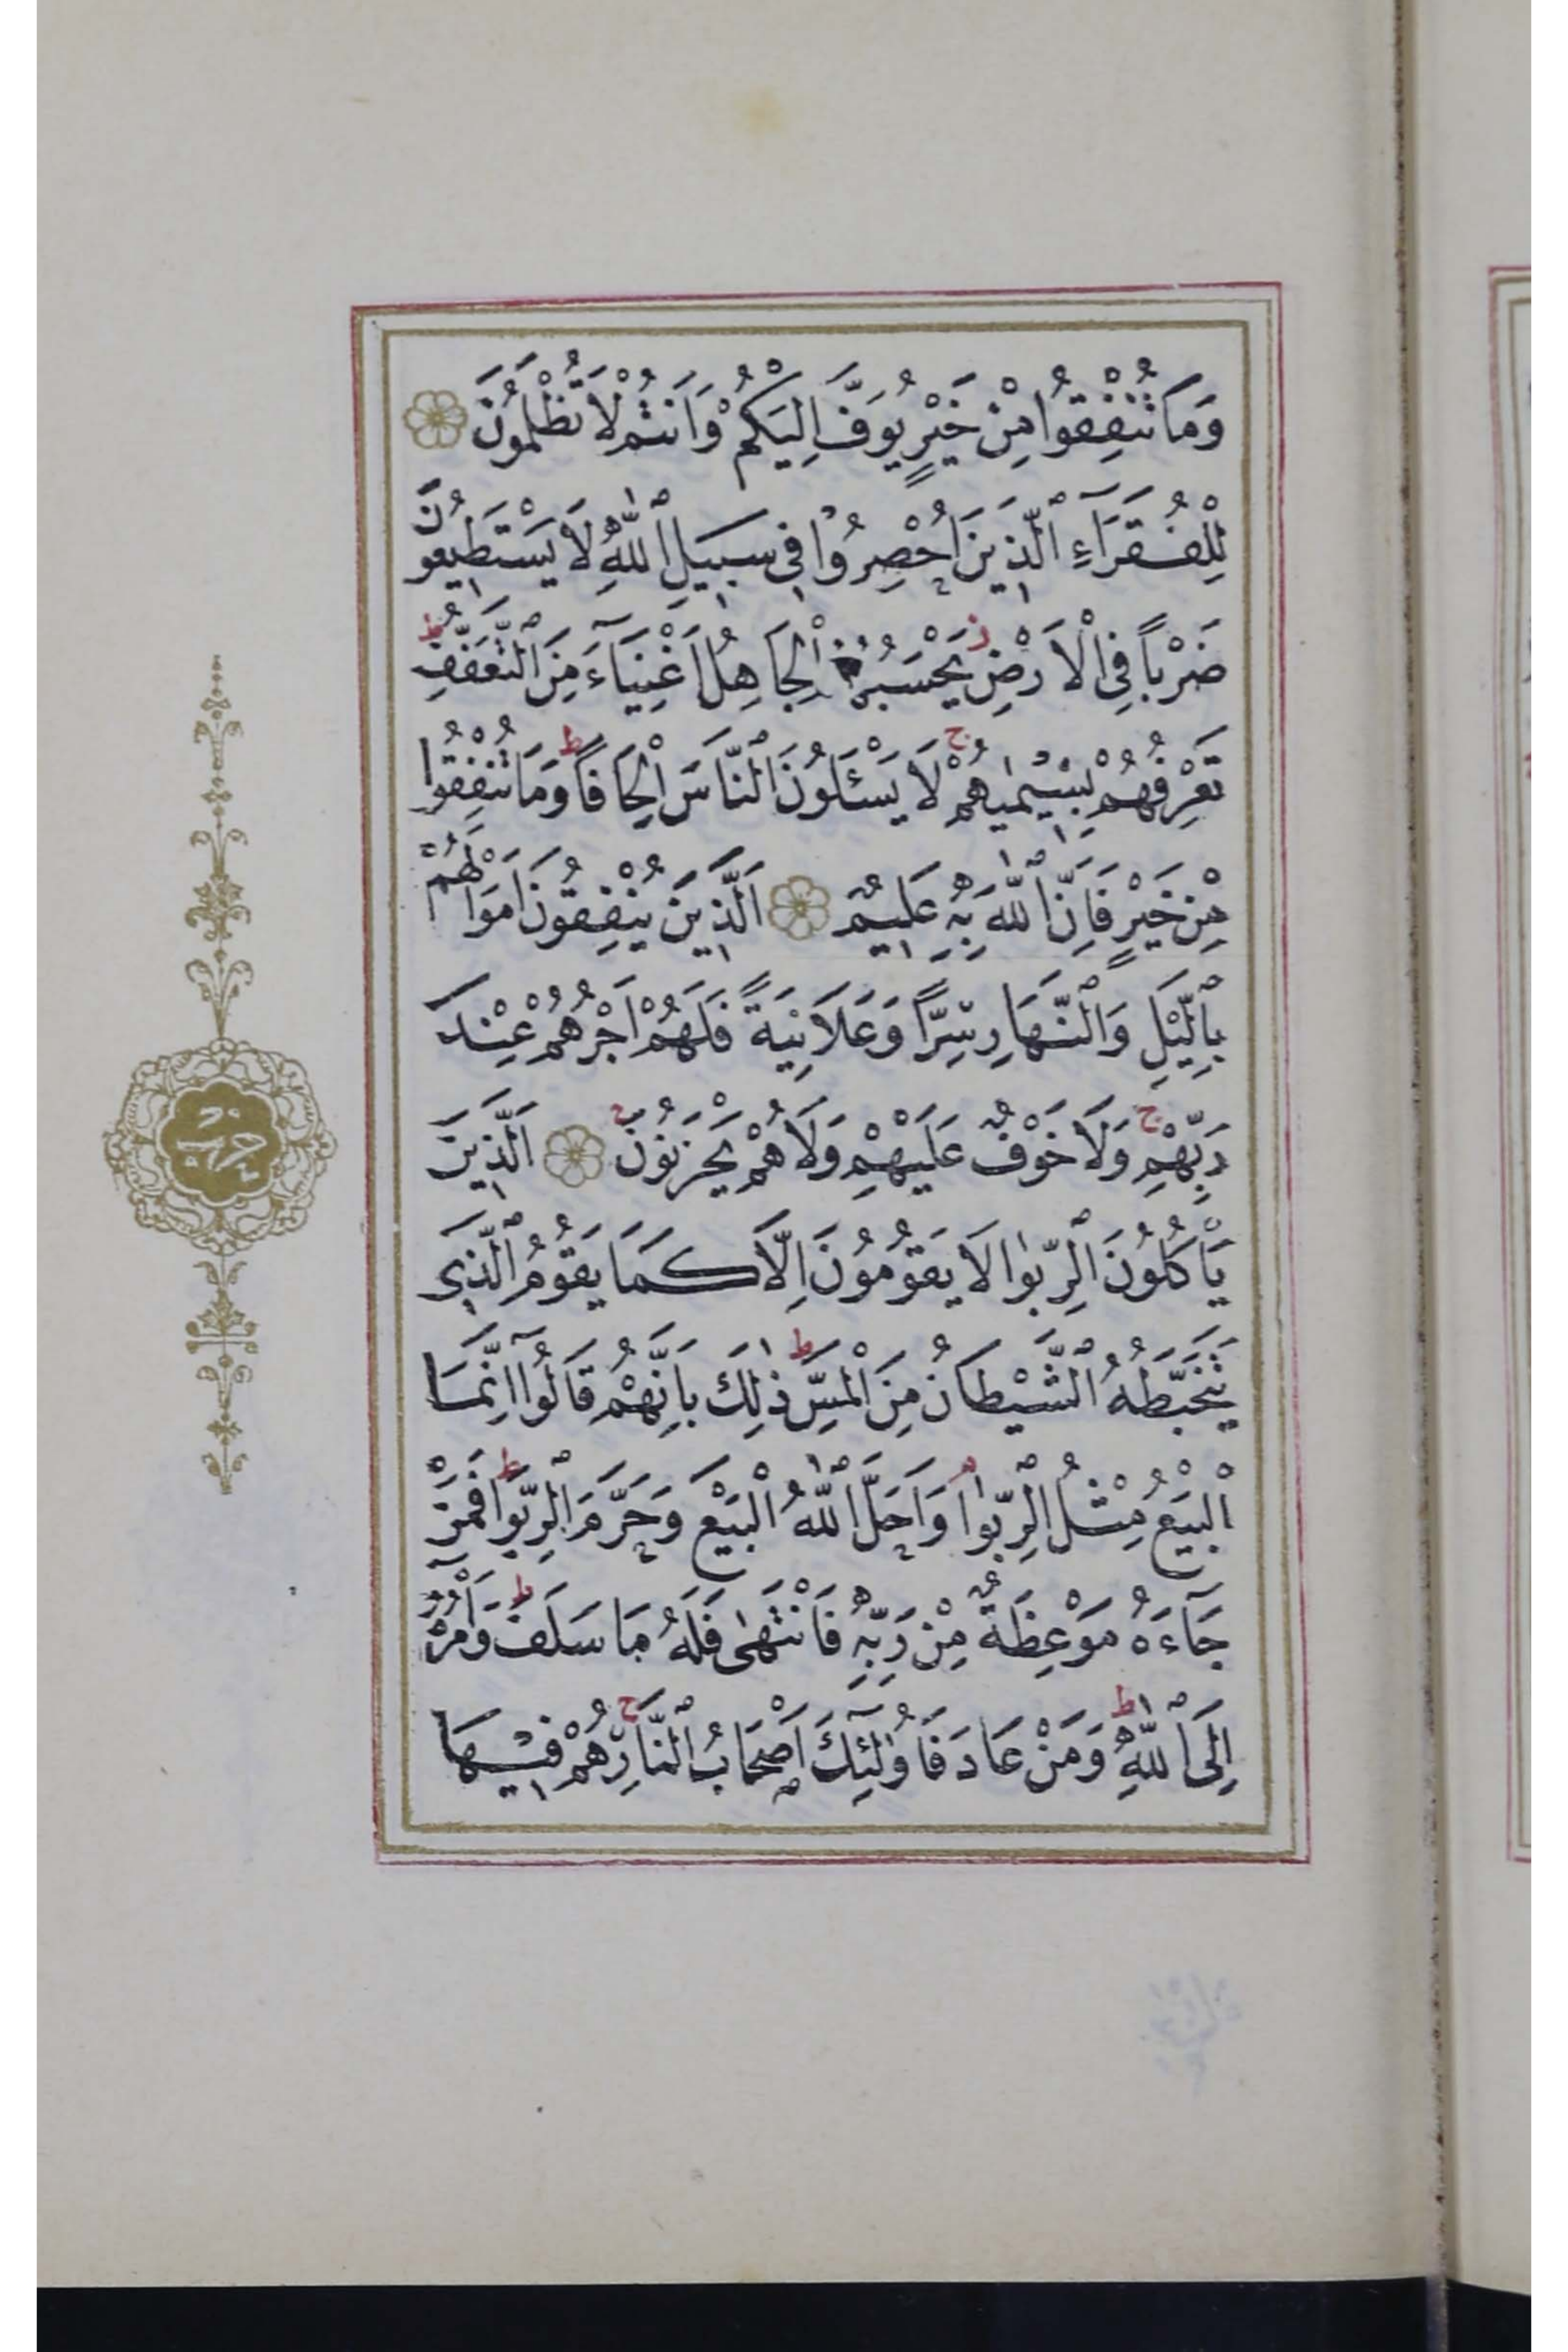 وَمَا تُنْفِقُوا مِنْ خَيْرٍ يُوَفَّ اِلَيْكُمْ وَاَنْتُمْ لَا تُظْلَمُونَ
لِلْفُقَرَآءِ ٱلَّذ۪ينَ اُحْصِرُوا ف۪ى سَب۪يلِ ٱللّٰهِ لَا يَسْتَط۪يعُونَ
ضَرْباً فِى الْاَرْضِ ز يَحْسَبُهُمُ الْجَاهِلُ اَغْنِيَآءَ مِنَ ٱلتَّعَفُّفِ ط
تَعْرِفُهُمْ بِس۪يمٰيهُمْ ج لَا يَسْئَلُونَ ٱلنَّاسَ اِلْحَافاً ط وَمَا تُنْفِقُوا
مِنْ خَيْرٍ فَاِنَّ ٱللّٰهَ بِه۪ عَل۪يمٌ اَلَّذ۪ينَ يُنْفِقُونَ اَمْوَالَهُمْ
بِالَّيْلِ وَٱلنَّهَارِ سِرًّا وَعَلَانِيَةً فَلَهُمْ اَجْرُهُمْ عِنْدَ
رَبِّهِمْ ج وَلَا خَوْفٌ عَلَيْهِمْ وَلَا هُمْ يَحْزَنُونَ اَلَّذ۪ينَ
يَأْكُلُونَ ٱلرِّبٰوا لَا يَقُومُونَ اِلَّا كَمَا يَقُومُ ٱلَّذ۪ى
يَتَخَبَّطُهُ ٱلشَّيْطَانُ مِنَ الْمَسِّ ط ذٰلِكَ بِاَنَّهُمْ قَالُوٓا اِنَّمَا
الْبَيْعُ مِثْلُ ٱلرِّبٰوا م وَاَحَلَّ ٱللّٰهُ الْبَيْعَ وَحَرَّمَ ٱلرِّبٰوا ط فَمَنْ
جَآءَهُ مَوْعِظَةٌ مِنْ رَبِّه۪ فَانْتَهٰى فَلَهُ مَا سَلَفَ ط وَاَمْرُهُٓ
اِلَى ٱللّٰهِ ط وَمَنْ عَادَ فَاُولٰٓئِكَ اَصْحَابُ ٱلنَّارِ ج هُمْ ف۪يهَا
حزب